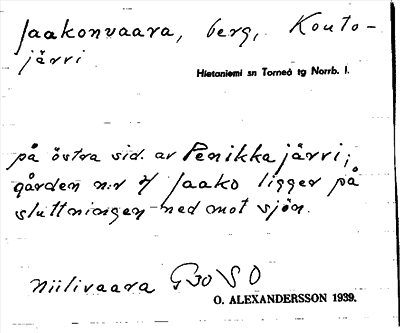 Jaakonvaara, berg, Kouto-
järvi
Hietaniemi sn Torneå tg Norrb. l.
på östra sid. av Penikkajärvi;
gården n:r 4 Jaako ligger på
sluttningen ned mot sjön.
Niilivaara G30 V S O
O. ALEXANDERSSON 1939.